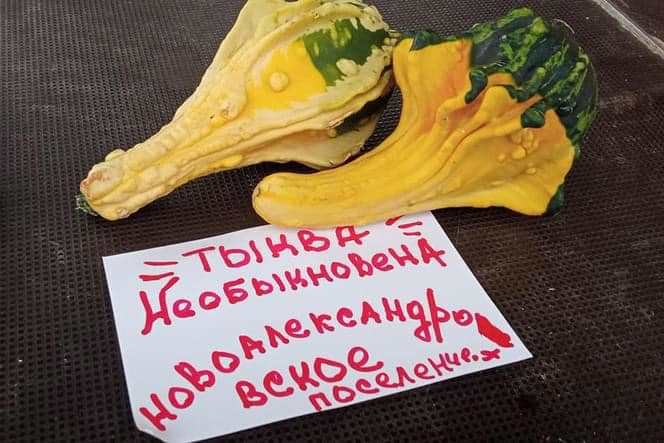 = ТЫКВА =
НЕОБЫКНОВЕНА
НОВОАЛЕКСАНДРО
ВСКОЕ
ПОСЕЛЕНИЕ.